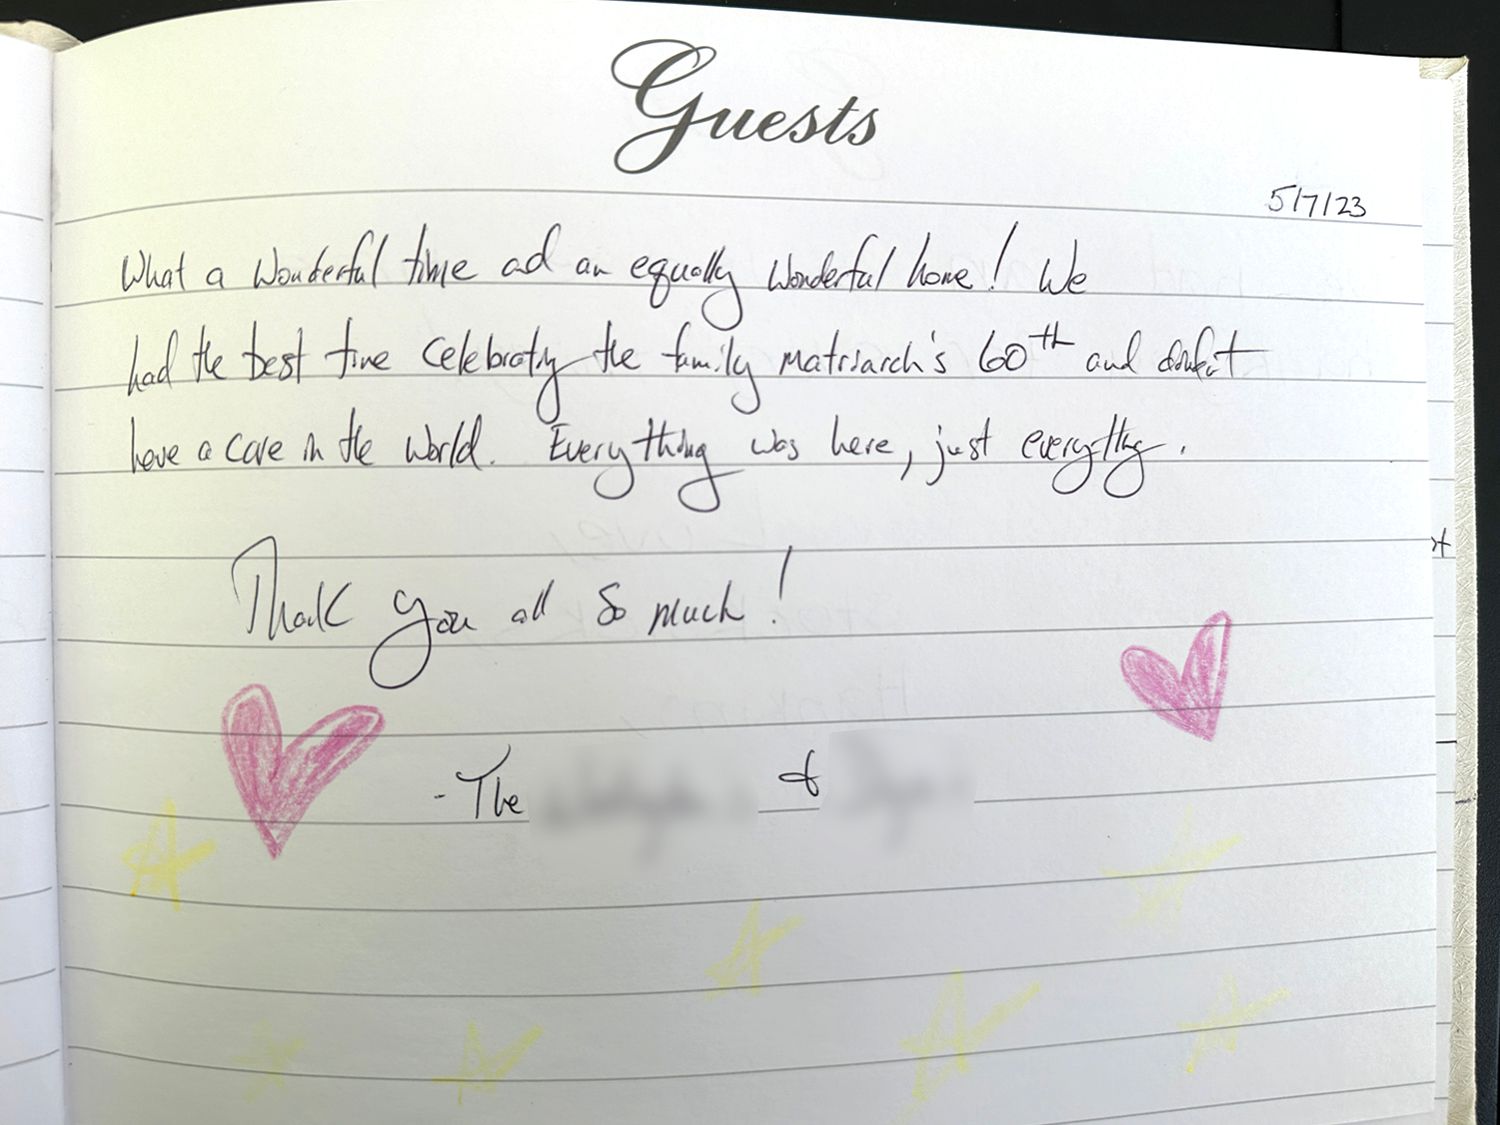 Guests
5/7/23
What a Wonderful time ad an equally Wonderful home! We
had the best time Celebrating the family Matriarch's 60th and didn't
have a care in the World. Everything was here, just everything.
Thank you all so much!
- The &